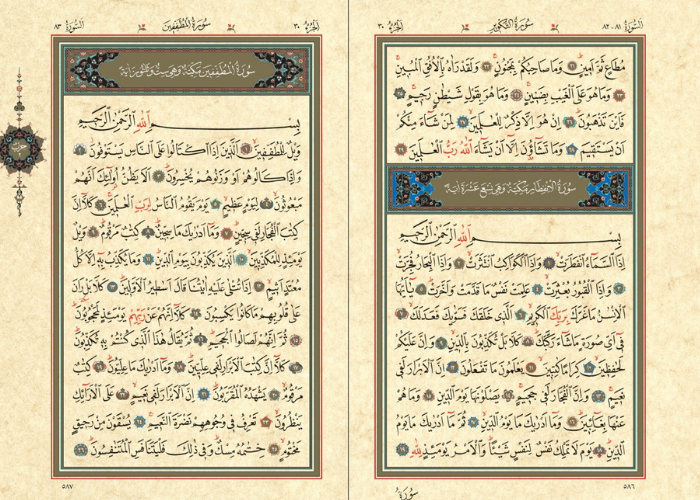 السورة ٨١-٨٢
سورة التكوير
الجزء ٣٠
مُطَاعٍ ثَمَّ اَمِينٍ ﴿٢١﴾ وَمَا صَاحِبُكُمْ بِمَجْنُونٍ ﴿٢٢﴾ وَلَقَدْ رَاٰهُ بِالْاُفُقِ الْمُبِينِ
﴿٢٣﴾ وَمَا هُوَ عَلَى الْغَيْبِ بِضَنِينٍ ﴿٢٤﴾ وَمَا هُوَ بِقَوْلِ شَيْطَانٍ رَجِيمٍ ﴿٢٥﴾
فَاَيْنَ تَذْهَبُونَ ﴿٢٦﴾ اِنْ هُوَ اِلَّا ذِكْرٌ لِلْعَالَمِينَ ﴿٢٧﴾ لِمَنْ شَٓاءَ مِنْكُمْ
اَنْ يَسْتَقِيمَ ﴿٢٨﴾ وَمَا تَشَٓاؤُ۫نَ اِلَّٓا اَنْ يَشَٓاءَ اللّٰهُ رَبُّ الْعَالَمِينَ ﴿٢٩﴾
سورة الانفطار مكية وهي تسع عشرة اية
بِسْمِ اللّٰهِ الرَّحْمٰنِ الرَّحِيمِ
اِذَا السَّمَٓاءُ انْفَطَرَتْ ﴿١﴾ وَاِذَا الْكَوَاكِبُ انْتَثَرَتْ ﴿٢﴾ وَاِذَا الْبِحَارُ فُجِّرَتْ
﴿٣﴾ وَاِذَا الْقُبُورُ بُعْثِرَتْ ﴿٤﴾ عَلِمَتْ نَفْسٌ مَا قَدَّمَتْ وَاَخَّرَتْ ﴿٥﴾ يَٓا اَيُّهَا
الْاِنْسَانُ مَا غَرَّكَ بِرَبِّكَ الْكَرِيمِ ﴿٦﴾ اَلَّذِي خَلَقَكَ فَسَوّٰيكَ فَعَدَلَكَ ﴿٧﴾
فِٓي اَيِّ صُورَةٍ مَا شَٓاءَ رَكَّبَكَ ﴿٨﴾ كَلَّا بَلْ تُكَذِّبُونَ بِالدِّينِ ﴿٩﴾ وَاِنَّ عَلَيْكُمْ
لَحَافِظِينَ ﴿١٠﴾ كِرَامًا كَاتِبِينَ ﴿١١﴾ يَعْلَمُونَ مَا تَفْعَلُونَ ﴿١٢﴾ اِنَّ الْاَبْرَارَ لَفِي
نَعِيمٍ ﴿١٣﴾ وَاِنَّ الْفُجَّارَ لَفِي جَحِيمٍ ﴿١٤﴾ يَصْلَوْنَهَا يَوْمَ الدِّينِ ﴿١٥﴾ وَمَا هُمْ
عَنْهَا بِغَٓائِبِينَ ﴿١٦﴾ وَمَٓا اَدْرٰيكَ مَا يَوْمُ الدِّينِ ﴿١٧﴾ ثُمَّ مَٓا اَدْرٰيكَ مَا يَوْمُ
الدِّينِ ﴿١٨﴾ يَوْمَ لَا تَمْلِكُ نَفْسٌ لِنَفْسٍ شَيْـًٔا وَالْاَمْرُ يَوْمَئِذٍ لِلّٰهِ ﴿١٩﴾
٥٨٦
سورة
الجزء ٣٠
سورة المطففين
السورة ٨٣
سورة المطففين مكية وهي ست وثلثون اية
بِسْمِ اللّٰهِ الرَّحْمٰنِ الرَّحِيمِ
وَيْلٌ لِلْمُطَفِّفِينَ ﴿١﴾ اَلَّذِينَ اِذَا اكْتَالُوا عَلَى النَّاسِ يَسْتَوْفُونَ ﴿٢﴾
وَاِذَا كَالُوهُمْ اَوْ وَزَنُوهُمْ يُخْسِرُونَ ﴿٣﴾ اَلَا يَظُنُّ اُو۬لٰٓئِكَ اَنَّهُمْ
مَبْعُوثُونَ ﴿٤﴾ لِيَوْمٍ عَظِيمٍ ﴿٥﴾ يَوْمَ يَقُومُ النَّاسُ لِرَبِّ الْعَالَمِينَ ﴿٦﴾ كَلَّٓا اِنَّ
كِتَابَ الْفُجَّارِ لَفِي سِجِّينٍ ﴿٧﴾ وَمَٓا اَدْرٰيكَ مَا سِجِّينٌ ﴿٨﴾ كِتَابٌ مَرْقُومٌ ﴿٩﴾ وَيْلٌ
يَوْمَئِذٍ لِلْمُكَذِّبِينَ ﴿١٠﴾ اَلَّذِينَ يُكَذِّبُونَ بِيَوْمِ الدِّينِ ﴿١١﴾ وَمَا يُكَذِّبُ بِهِٓ اِلَّا كُلُّ
مُعْتَدٍ اَثِيمٍ ﴿١٢﴾ اِذَا تُتْلٰى عَلَيْهِ اٰيَاتُنَا قَالَ اَسَاطِيرُ الْاَوَّلِينَ ﴿١٣﴾ كَلَّا بَلْ رَانَ
عَلٰى قُلُوبِهِمْ مَا كَانُوا يَكْسِبُونَ ﴿١٤﴾ كَلَّٓا اِنَّهُمْ عَنْ رَبِّهِمْ يَوْمَئِذٍ لَمَحْجُوبُونَ
﴿١٥﴾ ثُمَّ اِنَّهُمْ لَصَالُوا الْجَحِيمِ ﴿١٦﴾ ثُمَّ يُقَالُ هٰذَا الَّذِي كُنْتُمْ بِهِ تُكَذِّبُونَ
﴿١٧﴾ كَلَّٓا اِنَّ كِتَابَ الْاَبْرَارِ لَفِي عِلِّيِّينَ ﴿١٨﴾ وَمَٓا اَدْرٰيكَ مَا عِلِّيُّونَ ﴿١٩﴾ كِتَابٌ
مَرْقُومٌ ﴿٢٠﴾ يَشْهَدُهُ الْمُقَرَّبُونَ ﴿٢١﴾ اِنَّ الْاَبْرَارَ لَفِي نَعِيمٍ ﴿٢٢﴾ عَلَى الْاَرَٓائِكِ
يَنْظُرُونَ ﴿٢٣﴾ تَعْرِفُ فِي وُجُوهِهِمْ نَضْرَةَ النَّعِيمِ ﴿٢٤﴾ يُسْقَوْنَ مِنْ رَحِيقٍ
مَخْتُومٍ ﴿٢٥﴾ خِتَامُهُ مِسْكٌ وَفِي ذٰلِكَ فَلْيَتَنَافَسِ الْمُتَنَافِسُونَ ﴿٢٦﴾
٥٨٧
حزب